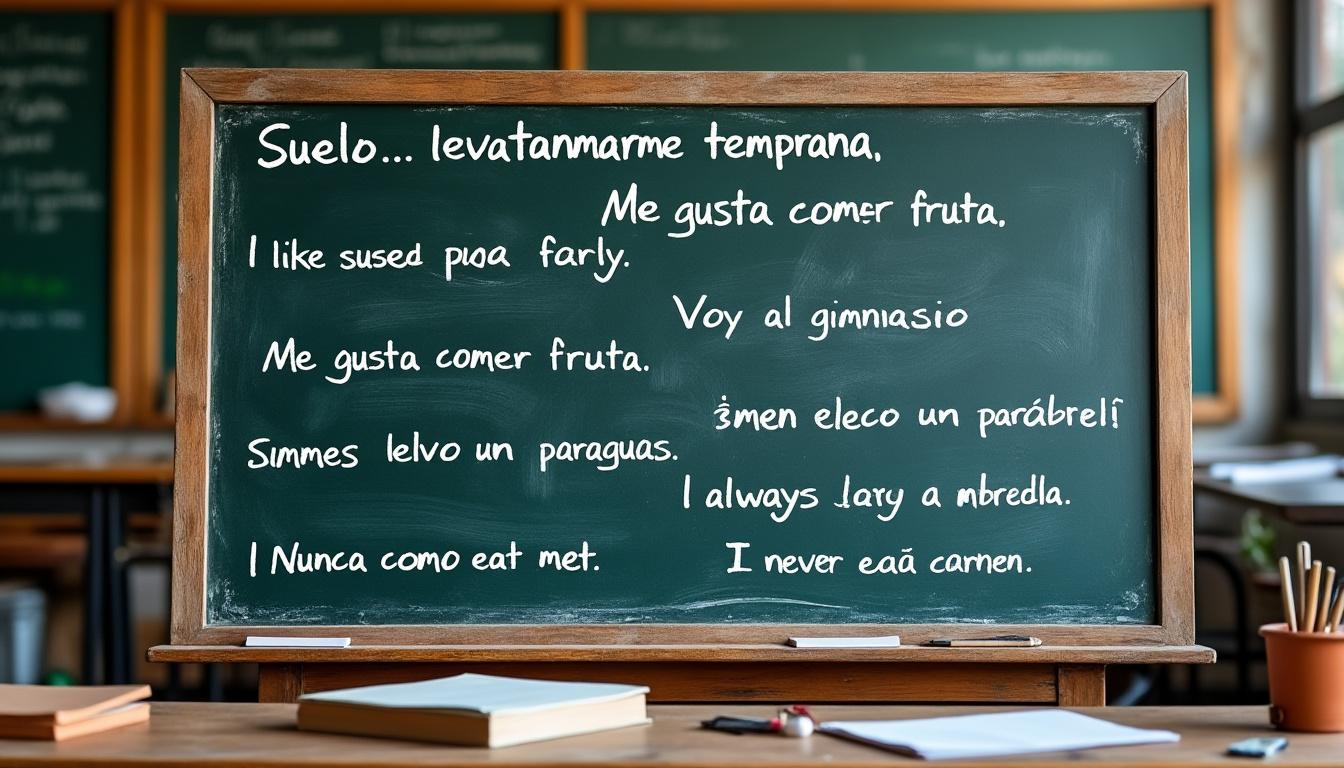 Suelo... levatanmarme temprana,
Me gusta comer fruta.
I like sused pıoa farly.
Voy al gimnıasio
Me gusta comer fruta.
un parábrelí
Sımmes lelvo un paraguas.
I always a mbredla.
I Nunca como eat met.
I never eaā carnen.